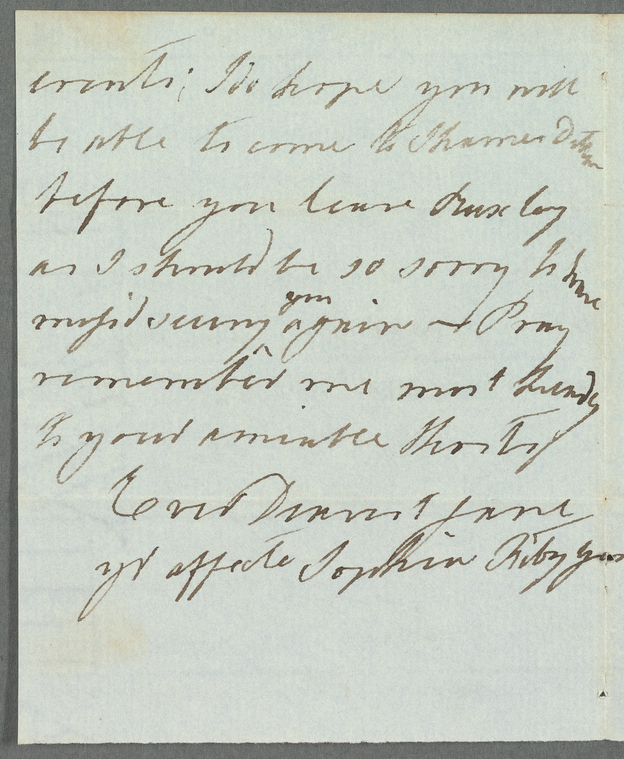 events; I do hope you will
be able to come to Thames Ditton
before you leave Ruxley
as I should be so sorry to have
miss'd seeing you again — Pray
remember me most kindly
to your amiable Hosts
Ever Dearest Jane
yr affecte Sophia